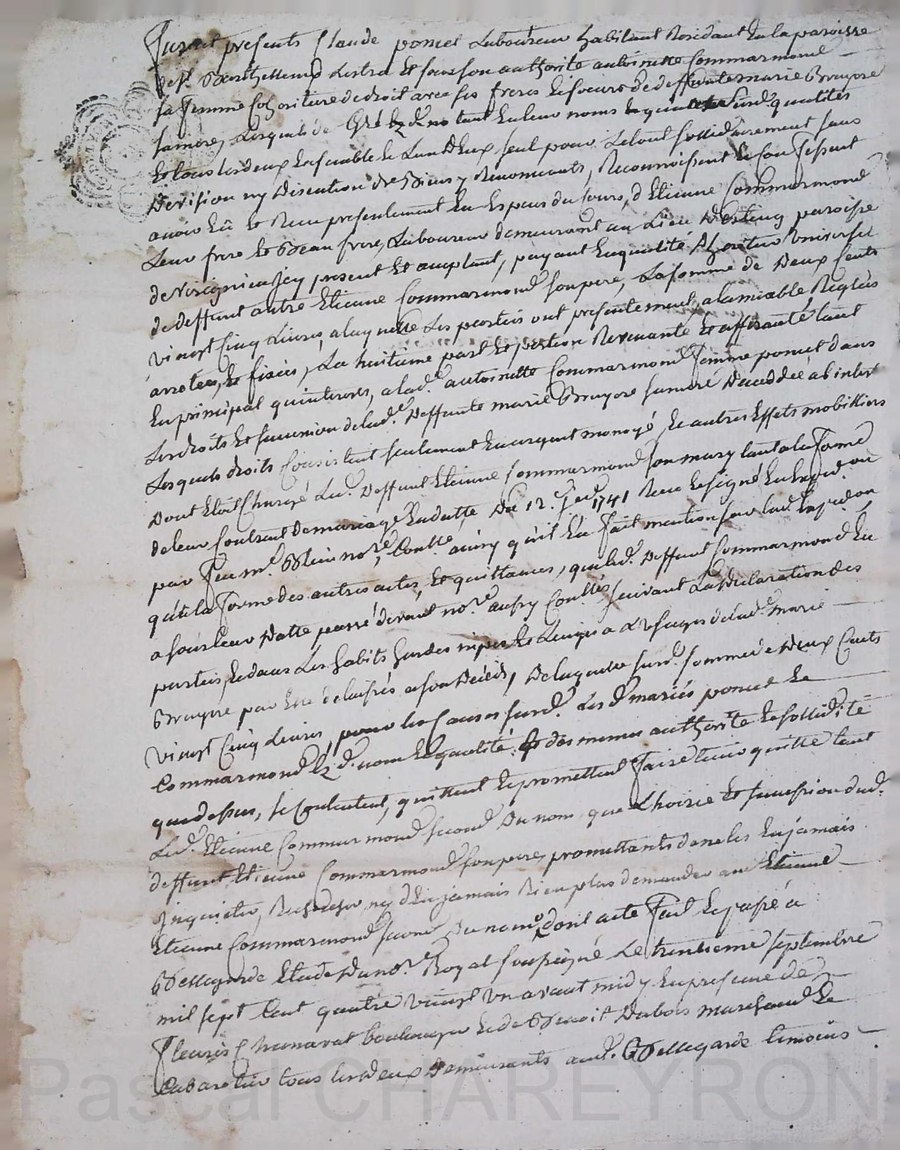 Furent présents Claude poncet Laboureur habitant Residant En la paroisse
de St. Lestra Et sous son authorité antoinette Commarmond
sa femme Cohéritiere de droit avec ses freres Et soeurs de deffunte marie Bruyere
sa mere, Lesquels de Gré Et en leur noms qualités
Et tous les deux Ensemble Le Lun d'Eux seul pour Le tout sollidairement sans
Division ny Discution de Biens y Renoncants, Reconnoissent Et Confessent
avoir Eû Et Recu présentement En Especes du Cours, d'Etienne Commarmond
Leur frere Et Beau frere, Laboureur demeurant au Lieu paroisse
de Virigneu Icy present Et acceptant, payant En qualité d'heritier Universel
de deffunt autre Etienne Commarmond son pere, La somme de Deux Cents
vingt Cinq Livres a laquelle Les parties ont présentement, a lamiable, Reglés
arrotée, Et fixée, La huitieme part Et portion Revenante Et afférante tant
En principal qu'interests, a lad. antoinette Commarmond femme poncet dans
Les droits Et succession de lad. Deffunte marie Bruyere sa mere Decedée ab intest
Lesquels droits Consistent seulement En argent monoyé, Et autres Effets mobilliers
Dont Etoit Chargé Led. Deffunt Etienne Commarmond son mary tant a la forme
de leur Contrat de mariage En datte Du 12. 1741 Recu Et signé
par feu me. no.re, ainsy qu'il En fait mention sur
qu'a la forme des autres actes, Et quittances, que led. Deffunt Commarmond En
a sous leur Datte passé devant no.re suivant La Declaration des
parties, Et dans Les habits hardes nipes Et Linges a L'usage de lad. marie
Bruyere par Elle délaissés a son Décéds, De laquelle susd. somme de Deux Cents
vingt Cinq Livres, pour les Causes susd. Les d. mariés poncet Et
Commarmond Ez d. nom Et qualité Et des memes authorité Et sollidité
que dessus, se Contentent, quittent Et promettent faire tenir quitte tant
Led. Etienne Commarmond second Du nom que L'hoirie Et succession dud.
deffunt Etienne Commarmond son pere, promettants de ne les En jamais
Inquieter, Rechercher ny d'En jamais Rien plus demander aud. Etienne
Etienne Commarmond second Du nom, dont acte fait Et passé a
Bellegarde Etude Du no.re Royal soussigné Le trentieme septembre
mil sept Cent quatre vingt un avant midy En presence de
fleury Chanavat boulanger Et de Benoit Dubois marchand Et
Cabaretier tous les deux Demeurants aud. Bellegarde temoins
Pascal CHAREYRON